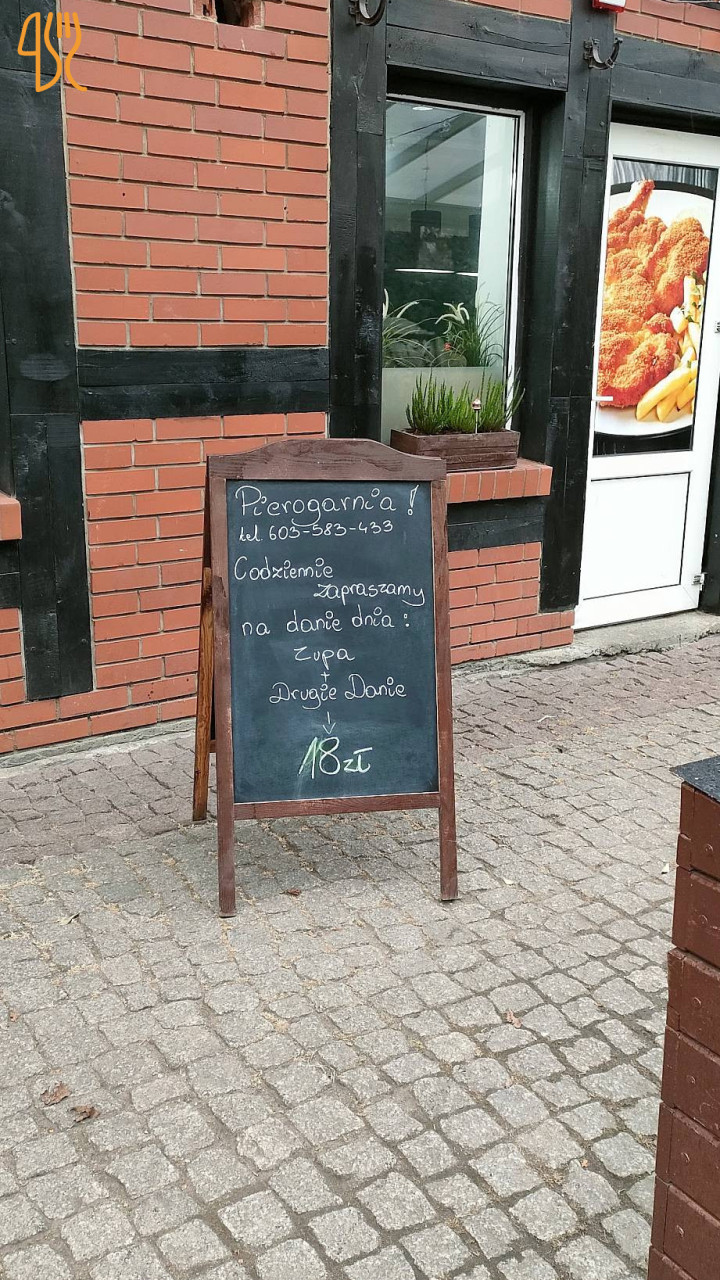 Pierogarnia!
tel. 603-583-433
Codziennie
zapraszamy
na danie dnia:
Zupa
+
Drugie Danie
↓
18zł